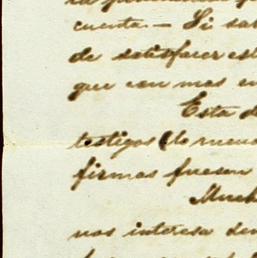 cuenta.— Si sa
de satisfacer es
que con mas en
Esta d
testigos (lo menos
firmas fuesen
Much
nos interesa de